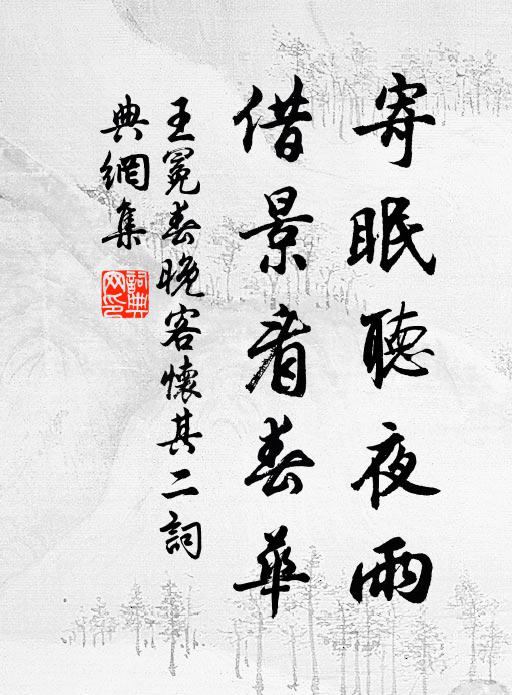 寄眠聽夜雨
借景看春華
王冕春晚客懷其二詞
典網集
詞典网印